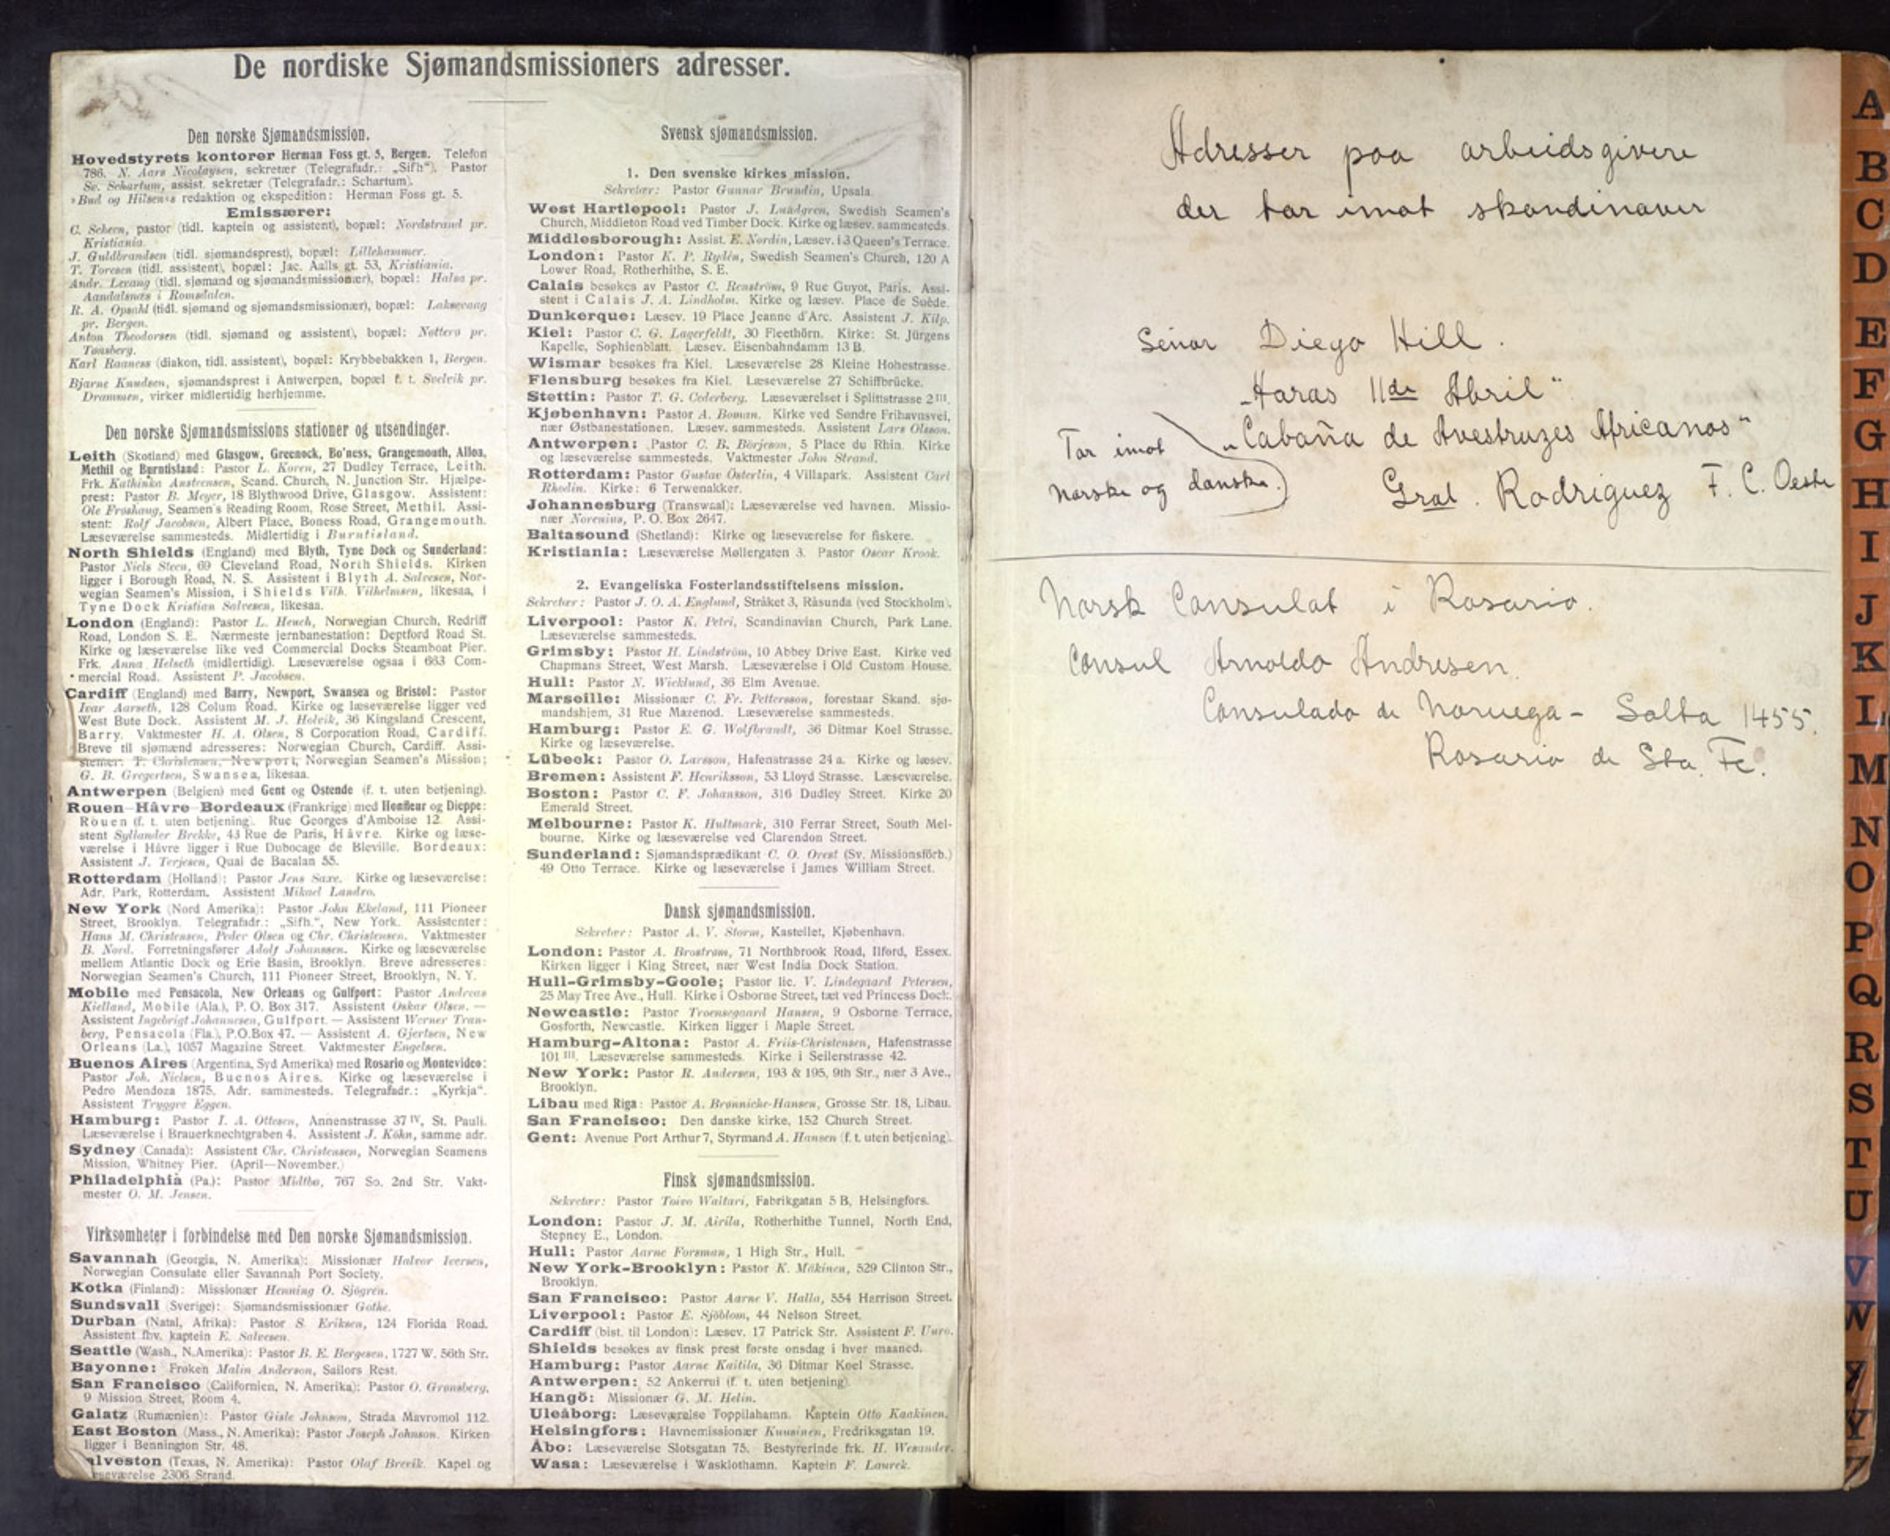 De nordiske Sjømandsmissioners adresser.
Den norske Sjømandsmission.
Hovedstyrets kontorer Herman Foss gt. 5, Bergen. Telefon
786. N. Aars Nicolaysen, sekretær (Telegrafadr.: „Sifh“). Pastor
Sv. Schartum, assist. sekretær (Telegrafadr.: Schartum).
»Bud og Hilsen«s redaktion og ekspedition: Herman Foss gt. 5.
Emissærer:
C. Scheen, pastor (tidl. kaptein og assistent), bopæl: Nordstrand pr.
Kristiania.
J. Guldbrandsen (tidl. sjømandsprest), bopæl: Lillehammer.
T. Toresen (tidl. assistent), bopæl: Jac. Aalls gt. 53, Kristiania.
Andr. Lexang (tidl. sjømand og sjømandsmissionær), bopæl: Halsa pr.
Aandalsnæs i Romsdalen.
R. A. Opsahl (tidl. sjømand og sjømandsmissionær), bopæl: Laksevaag
pr. Bergen.
Anton Theodorsen (tidl. sjømand og assistent), bopæl: Nøtterø pr.
Tønsberg.
Karl Raaness (diakon, tidl. assistent), bopæl: Krybbebakken 1, Bergen.
Bjarne Knudsen, sjømandsprest i Antwerpen, bopæl f. t. Svelvik pr.
Drammen, virker midlertidig herhjemme.
Den norske Sjømandsmissions stationer og utsendinger.
Leith (Skotland) med Glasgow, Greenock, Bo'ness, Grangemouth, Alloa,
Methil og Burntisland: Pastor L. Koren, 27 Dudley Terrace, Leith.
Frk. Kathinka Anstrensen, Scand. Church, N. Junction Str. Hjælpe-
prest: Pastor B. Meyer, 18 Blythwood Drive, Glasgow. Assistent:
Ole Frøshaug, Seamen's Reading Room, Rose Street, Methil. Assi-
stent: Rolf Jacobsen, Albert Place, Boness Road, Grangemouth.
Læseværelse sammesteds. Midlertidig i Burntisland.
North Shields (England) med Blyth, Tyne Dock og Sunderland:
Pastor Niels Steen, 69 Cleveland Road, North Shields. Kirken
ligger i Borough Road, N. S. Assistent i Blyth A. Salvesen, Nor-
wegian Seamen's Mission, i Shields Vilh. Vilhelmsen, likesaa, i
Tyne Dock Kristian Salvesen, likesaa.
London (England): Pastor L. Heuch, Norwegian Church, Redriff
Road, London S. E. Nærmeste jernbanestation: Deptford Road St.
Kirke og læseværelse like ved Commercial Docks Steamboat Pier.
Frk. Anna Helseth (midlertidig). Læseværelse ogsaa i 663 Com-
mercial Road. Assistent P. Jacobsen.
Cardiff (England) med Barry, Newport, Swansea og Bristol: Pastor
Ivar Aarseth, 128 Colum Road. Kirke og læseværelse ligger ved
West Bute Dock. Assistent M. J. Holvik, 36 Kingsland Crescent,
Barry. Vaktmester H. A. Olsen, 8 Corporation Road, Cardiff.
Breve til sjømænd adresseres: Norwegian Church, Cardiff. Assi-
stenter: T. Christensen, Newport, Norwegian Seamen's Mission;
G. B. Gregertsen, Swansea, likesaa.
Antwerpen (Belgien) med Gent og Ostende (f. t. uten betjening).
Rouen-Hâvre-Bordeaux (Frankrige) med Honfleur og Dieppe:
Rouen (f. t. uten betjening). Rue Georges d'Amboise 12. Assi-
stent Syllander Brekke, 43 Rue de Paris, Hâvre. Kirke og læse-
værelse i Hâvre ligger i Rue Dubocage de Bleville. Bordeaux:
Assistent J. Terjesen, Quai de Bacalan 55.
Rotterdam (Holland): Pastor Jens Saxe. Kirke og læseværelse:
Adr. Park, Rotterdam. Assistent Mikael Landro.
New York (Nord Amerika): Pastor John Ekeland, 111 Pioneer
Street, Brooklyn. Telegrafadr.: „Sifh.“, New York. Assistenter:
Hans M. Christensen, Peder Olsen og Chr. Christensen. Vaktmester
B. Nord. Forretningsfører Adolf Johanssen. Kirke og læseværelse
mellem Atlantic Dock og Erie Basin, Brooklyn. Breve adresseres:
Norwegian Seamen's Church, 111 Pioneer Street, Brooklyn, N. Y.
Mobile med Pensacola, New Orleans og Gulfport: Pastor Andreas
Kielland, Mobile (Ala.), P. O. Box 317. Assistent Oskar Olsen. —
Assistent Ingebrigt Johannesen, Gulfport. — Assistent Werner Tran-
berg, Pensacola (Fla.), P.O.Box 47. — Assistent A. Gjertsen, New
Orleans (La.), 1057 Magazine Street. Vaktmester Engelsen.
Buenos Aires (Argentina, Syd Amerika) med Rosario og Montevideo:
Pastor Joh. Nielsen, Buenos Aires. Kirke og læseværelse i
Pedro Mendoza 1875. Adr. sammesteds. Telegrafadr.: „Kyrkja“.
Assistent Tryggve Eggen.
Hamburg: Pastor I. A. Ottesen, Annenstrasse 37 IV, St. Pauli.
Læseværelse i Brauerknechtgraben 4. Assistent J. Köhn, samme adr.
Sydney (Canada): Assistent Chr. Christensen, Norwegian Seamens
Mission, Whitney Pier. (April—November.)
Philadelphia (Pa.): Pastor Midtbø, 767 So. 2nd Str. Vakt-
mester O. M. Jensen.
Virksomheter i forbindelse med Den norske Sjømandsmission.
Savannah (Georgia, N. Amerika): Missionær Halvor Iversen,
Norwegian Consulate eller Savannah Port Society.
Kotka (Finland): Missionær Henning O. Sjögren.
Sundsvall (Sverige): Sjømandsmissionær Gothe.
Durban (Natal, Afrika): Pastor S. Eriksen, 124 Florida Road.
Assistent fhv. kaptein E. Salvesen.
Seattle (Wash., N.Amerika): Pastor B. E. Bergesen, 1727 W. 56th Str.
Bayonne: Frøken Malin Anderson, Sailors Rest.
San Francisco (Californien, N. Amerika): Pastor O. Grønsberg,
9 Mission Street, Room 4.
Galatz (Rumænien): Pastor Gisle Johnson, Strada Mavromol 112.
East Boston (Mass., N. Amerika): Pastor Joseph Johnson. Kirken
ligger i Bennington Str. 48.
alveston (Texas, N. Amerika): Pastor Olaf Brevik. Kapel og
læseværelse 2306 Strand.
Svensk sjømandsmission.
1. Den svenske kirkes mission.
Sekretær: Pastor Gunnar Brundin, Upsala.
West Hartlepool: Pastor J. Lundgren, Swedish Seamen's
Church, Middleton Road ved Timber Dock. Kirke og læsev. sammesteds.
Middlesborough: Assist. E. Nordin, Læsev. i 3 Queen's Terrace.
London: Pastor K. P. Rydén, Swedish Seamen's Church, 120 A
Lower Road, Rotherhithe, S. E.
Calais besøkes av Pastor C. Renström, 9 Rue Guyot, Paris. Assi-
stent i Calais J. A. Lindholm. Kirke og læsev. Place de Suède.
Dunkerque: Læsev. 19 Place Jeanne d'Arc. Assistent J. Kilp.
Kiel: Pastor C. G. Lagerfeldt, 30 Fleethörn. Kirke: St. Jürgens
Kapelle, Sophienblatt. Læsev. Eisenbahndamm 13 B.
Wismar besøkes fra Kiel. Læseværelse 28 Kleine Hohestrasse.
Flensburg besøkes fra Kiel. Læseværelse 27 Schiffbrücke.
Stettin: Pastor T. G. Cederberg. Læseværelset i Splittstrasse 2 III.
Kjøbenhavn: Pastor A. Boman. Kirke ved Søndre Frihavnsvei,
nær Østbanestationen. Læsev. sammesteds. Assistent Lars Olsson.
Antwerpen: Pastor C. B. Börjeson, 5 Place du Rhin. Kirke
og læseværelse sammesteds. Vaktmester John Strand.
Rotterdam: Pastor Gustav Österlin, 4 Villapark. Assistent Carl
Rhodin. Kirke: 6 Terwenakker.
Johannesburg (Transwaal): Læseværelse ved havnen. Missio-
nær Norenius, P. O. Box 2647.
Baltasound (Shetland): Kirke og læseværelse for fiskere.
Kristiania: Læseværelse Møllergaten 3. Pastor Oscar Krook.
2. Evangeliska Fosterlandsstiftelsens mission.
Sekretær: Pastor J. O. A. Englund, Stråket 3, Råsunda (ved Stockholm).
Liverpool: Pastor K. Petri, Scandinavian Church, Park Lane.
Læseværelse sammesteds.
Grimsby: Pastor H. Lindström, 10 Abbey Drive East. Kirke ved
Chapmans Street, West Marsh. Læseværelse i Old Custom House.
Hull: Pastor N. Wicklund, 36 Elm Avenue.
Marseille: Missionær C. Fr. Pettersson, forestaar Skand. sjø-
mandshjem, 31 Rue Mazenod. Læseværelse sammesteds.
Hamburg: Pastor E. G. Wolfbrandt, 36 Ditmar Koel Strasse.
Kirke og læseværelse.
Lübeck: Pastor O. Larsson, Hafenstrasse 24 a. Kirke og læsev.
Bremen: Assistent F. Henriksson, 53 Lloyd Strasse. Læseværelse.
Boston: Pastor C. F. Johansson, 316 Dudley Street. Kirke 20
Emerald Street.
Melbourne: Pastor K. Hultmark, 310 Ferrar Street, South Mel-
bourne. Kirke og læseværelse ved Clarendon Street.
Sunderland: Sjømandsprædikant C. O. Orest (Sv. Missionsförb.)
49 Otto Terrace. Kirke og læseværelse i James William Street.
Dansk sjømandsmission.
Sekretær: Pastor A. V. Storm, Kastellet, Kjøbenhavn.
London: Pastor A. Brostrøm, 71 Northbrook Road, Ilford, Essex.
Kirken ligger i King Street, nær West India Dock Station.
Hull-Grimsby-Goole; Pastor lic. V. Lindegaard Petersen,
25 May Tree Ave., Hull. Kirke i Osborne Street, tæt ved Princess Dock.
Newcastle: Pastor Troensegaard Hansen, 9 Osborne Terrace,
Gosforth, Newcastle. Kirken ligger i Maple Street.
Hamburg-Altona: Pastor A. Friis-Christensen, Hafenstrasse
101 III. Læseværelse sammesteds. Kirke i Seilerstrasse 42.
New York: Pastor R. Andersen, 193 & 195, 9th Str., nær 3 Ave.,
Brooklyn.
Libau med Riga: Pastor A. Brønniche-Hansen, Grosse Str. 18, Libau.
San Francisco: Den danske kirke, 152 Church Street.
Gent: Avenue Port Arthur 7, Styrmand A. Hansen (f. t. uten betjening).
Finsk sjømandsmission.
Sekretær: Pastor Toivo Waltari, Fabrikgatan 5 B, Helsingfors.
London: Pastor J. M. Airila, Rotherhithe Tunnel, North End,
Stepney E., London.
Hull: Pastor Aarne Forsman, 1 High Str., Hull.
New York-Brooklyn: Pastor K. Mäkinen, 529 Clinton Str.,
Brooklyn.
San Francisco: Pastor Aarne V. Halla, 554 Harrison Street.
Liverpool: Pastor E. Sjöblom, 44 Nelson Street.
Cardiff (bist. til London): Læsev. 17 Patrick Str. Assistent F. Uuro.
Shields besøkes av finsk prest første onsdag i hver maaned.
Hamburg: Pastor Aarne Kaitila, 36 Ditmar Koel Strasse.
Antwerpen: 52 Ankerrui (f. t. uten betjening).
Hangö: Missionær G. M. Helin.
Uleåborg: Læseværelse Toppilahamn. Kaptein Otto Kaakinen.
Helsingfors: Havnemissionær Kuusinen, Fredriksgatan 19.
Åbo: Læseværelse Slotsgatan 75. Bestyrerinde frk. H. Wesander.
Wasa: Læseværelse i Wasklothamn. Kaptein F. Laurek.
Adresser paa arbeidsgivere
der tar imot skandinaver
Senor Diego Hill.
„Haras 11 de Abril“
„Cabaña de Avestruzes Africanos“
Tar imot
norske og danske.
Gral. Rodriguez F. C. Oeste
Norsk Consulat i Rosario.
Consul Arnoldo Andresen.
Consulado de Noruega - Salta 1455.
Rosario de Sta. Fe.
A
B
C
D
E
F
G
H
I
J
K
L
M
N
O
P
Q
R
S
T
U
V
W
Y
Z